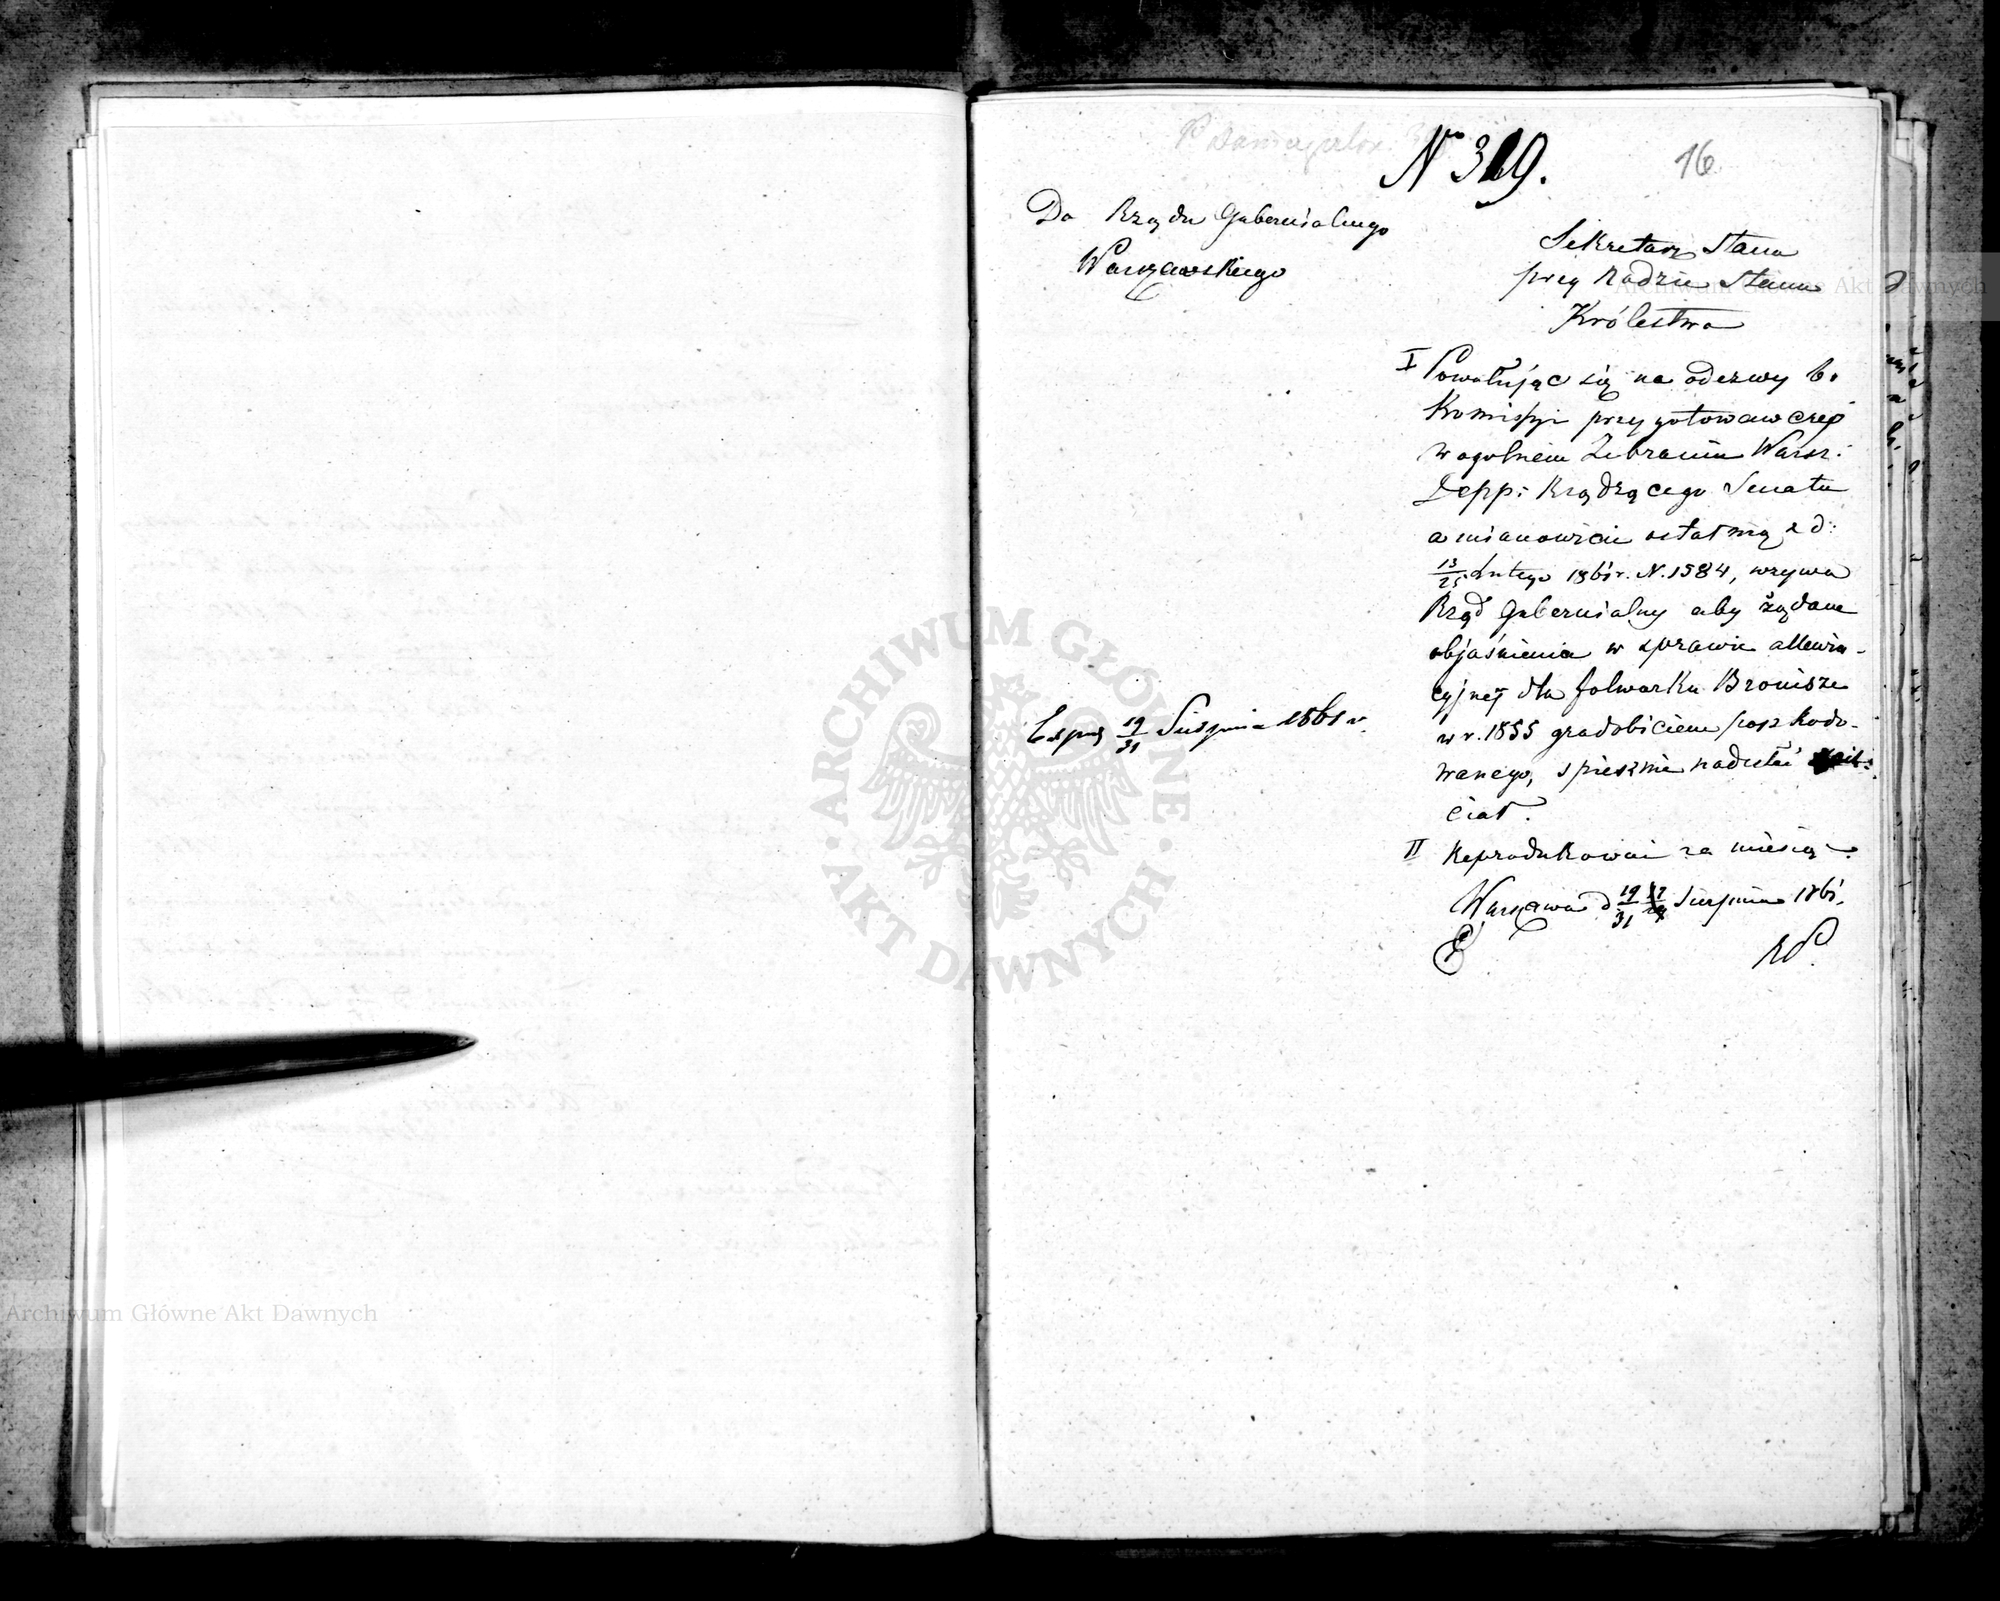 N 319.
16
Do Rządu Gubernialnego
Warszawskiego
Sekretarz Stanu
przy Radzie Stanu
Królestwa
I Powołując się na odezwy b.
Kommissyi przygotowawczej
w ogolnem Zebraniu Warsz:
Depp: Rządzącego Senatu
a mianowicie ostatnią z d:
13/25 Lutego 1861 r. N. 1584, wzywa
Rząd Gubernialny aby żądane
objaśnienia w sprawie allewia-
cyjnej dla folwarku Bronisze
w r. 1855 gradobiciem poszkodo-
wanego, spiesznie nadesłać
ciał.
II Reprodukować za miesiąc.
Warszawa d 19/31 Sierpnia 1861.
Exped 19/31 Sierpnia 1861 r.
ARCHIWUM GŁÓWNE
AKT DAWNYCH
Archiwum Główne Akt Dawnych
Archiwum Główne Akt Dawnych